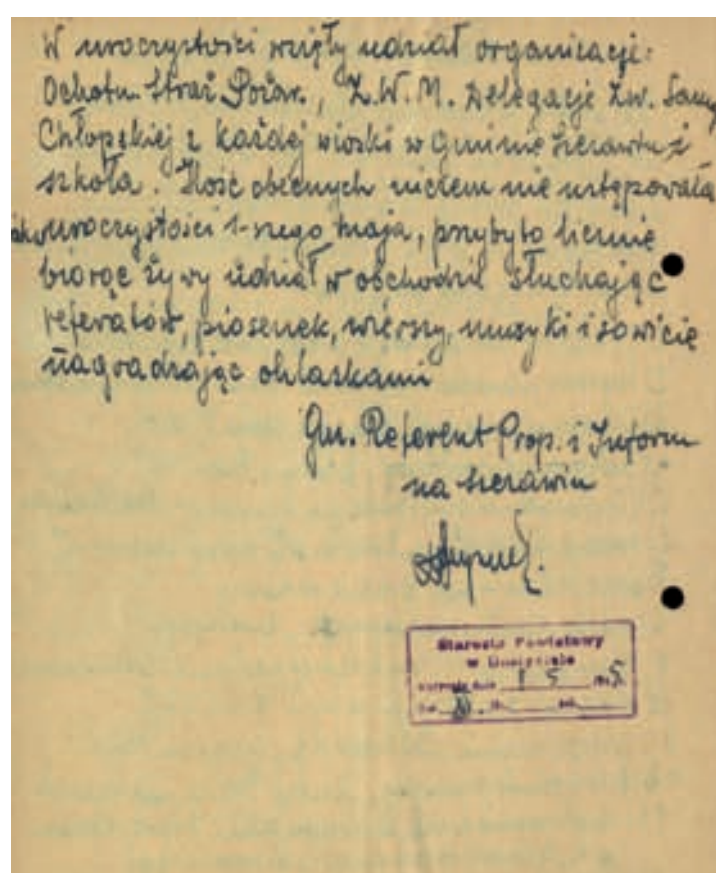 W uroczystości wzięły udział organizacje:
Ochotn. Straż Pożar., Z.W.M. Delegacje Zw. Samop
Chłopskiej z każdej wioski w Gminie Sierawin i
szkoła. Ilość obecnych niczem nie ustępowała
uroczystości 1-szego Maja, przybyło licznie
biorąc żywy udział w obchodzie słuchając
referatów, piosenek, wierszy, muzyki i sowicię
nagradzając oklaskami
Gm. Referent Prop. i Inform
na
Starosta Powiatowy
w
1 5 5